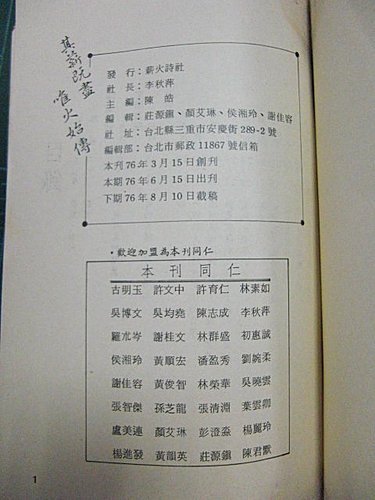 其薪既盡
唯火始傳
發　行：薪火詩社
社　長：李秋萍
主　編：陳　皓
編　輯：莊源鎮、顏艾琳、侯湘玲、謝佳容
社　址：台北縣三重市安慶街289-2號
編輯部：台北市郵政11867號信箱
本刊76年3月15日創刊
本期76年6月15日出刊
下期76年8月10日截稿
·歡迎加盟為本刊同仁
本刊同仁
古明玉　許文中　許育仁　林素如
吳博文　吳均堯　陳志成　李秋萍
羅朩岑　謝桂文　林群盛　初惠誠
侯湘玲　黃順宏　潘盈秀　劉婉柔
謝佳容　黃俊智　林榮華　吳曉雲
張智傑　孫芝龍　張清淵　葉雲卿
盧美連　顏艾琳　彭澄淼　楊麗玲
楊進發　黃韻英　莊源鎮　陳君默
1